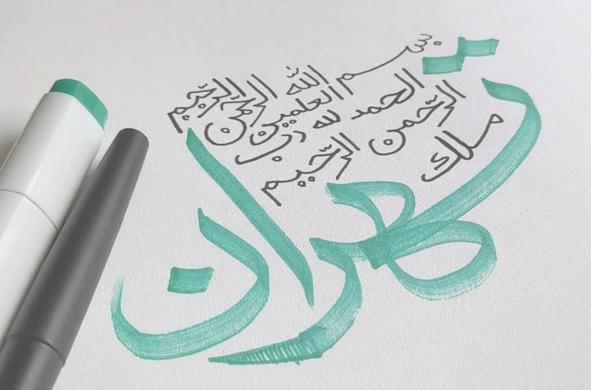 بسم اللّه الرّحمن الرّحيم
الحمد لله رب العلمين
الرّحمن الرّحيم
ملك
تهران